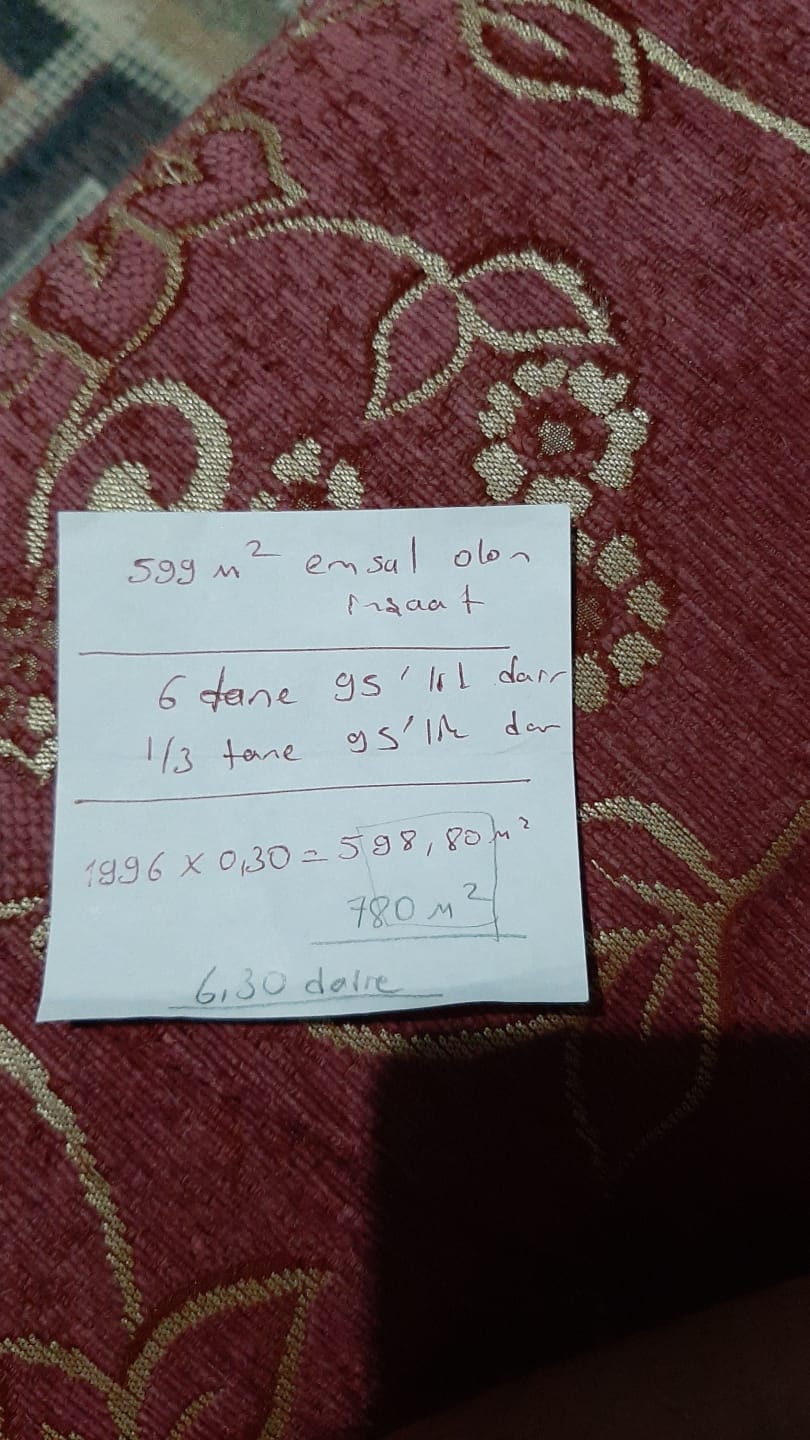 599 m² emsal olan
inşaat
6 tane 95'lik dair
1/3 tane 95'lik dar
1996 x 0,30 = 598,80 m²
780 m²
6,30 daire